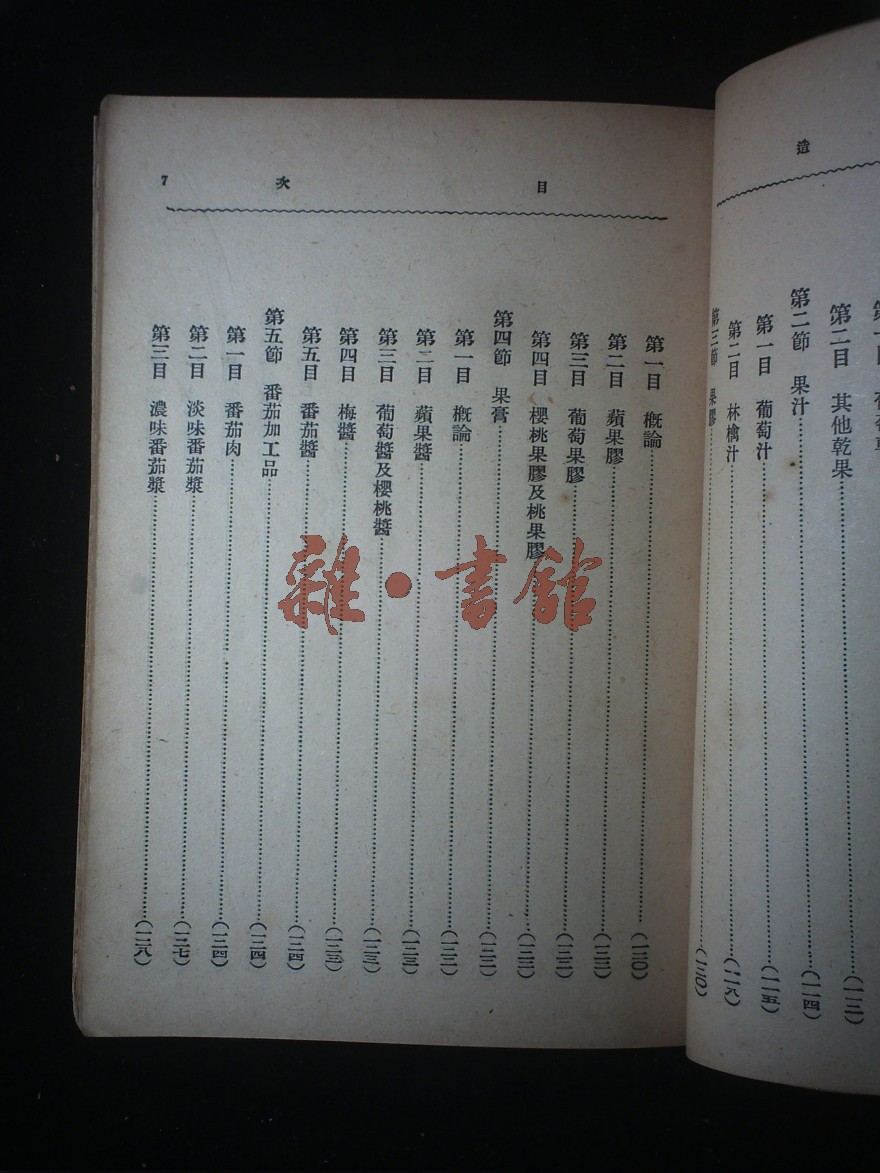 造
第二目 其他乾果……(一一二)
第二節 果汁……(一一四)
第一目 葡萄汁……(一一五)
第二目 林檎汁……(一一八)
第三節 果膠……(一二〇)
目次 7
第一目 概論……(一二〇)
第二目 蘋果膠……(一二二)
第三目 葡萄果膠……(一二二)
第四目 櫻桃果膠及桃果膠……(一二二)
第四節 果膏……(一二二)
第一目 概論……(一二二)
第二目 蘋果醬……(一二三)
第三目 葡萄醬及櫻桃醬……(一二三)
第四目 梅醬……(一二三)
第五目 番茄醬……(一二四)
第五節 番茄加工品……(一二四)
第一目 番茄肉……(一二四)
第二目 淡味番茄漿……(一二七)
第三目 濃味番茄漿……(一二八)
雜·書館